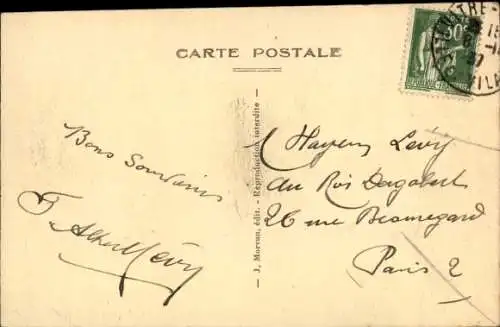 CARTE POSTALE
Bons Souvenirs
Albert Lévy
J. Moreau, édit. - Reproduction interdite
Hayem Levy
au Roi Dagobert
26 rue Beauregard
Paris 2